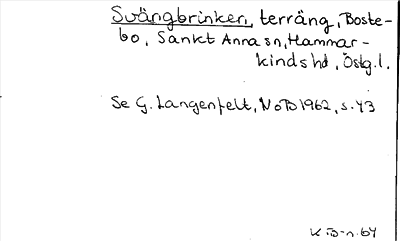 Svängbrinken, terräng, Boste-
bo, Sankt Anna sn, Hammar-
kinds hd, Östg.l.
Se G. Langenfelt, NoB 1962, s. 43
K B-n. 64